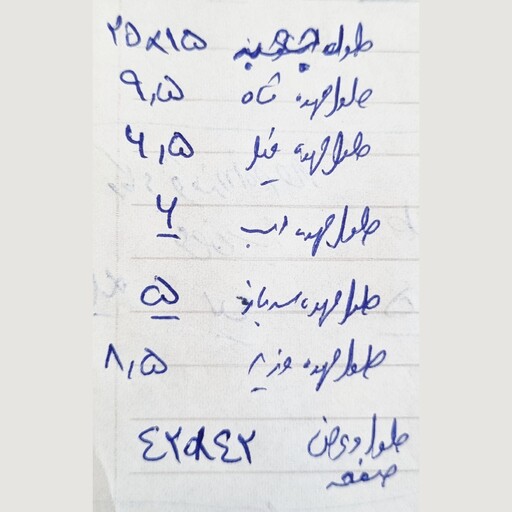 طول جعبه ۲۵×۱۵
طول مهره شاه ۹٫۵
طول مهره فیل ۶٫۵
طول مهره اسب ۶
طول مهره سرباز ۵
طول مهره وزیر ۸٫۵
طول و عرض صفحه ۴۲×۴۲